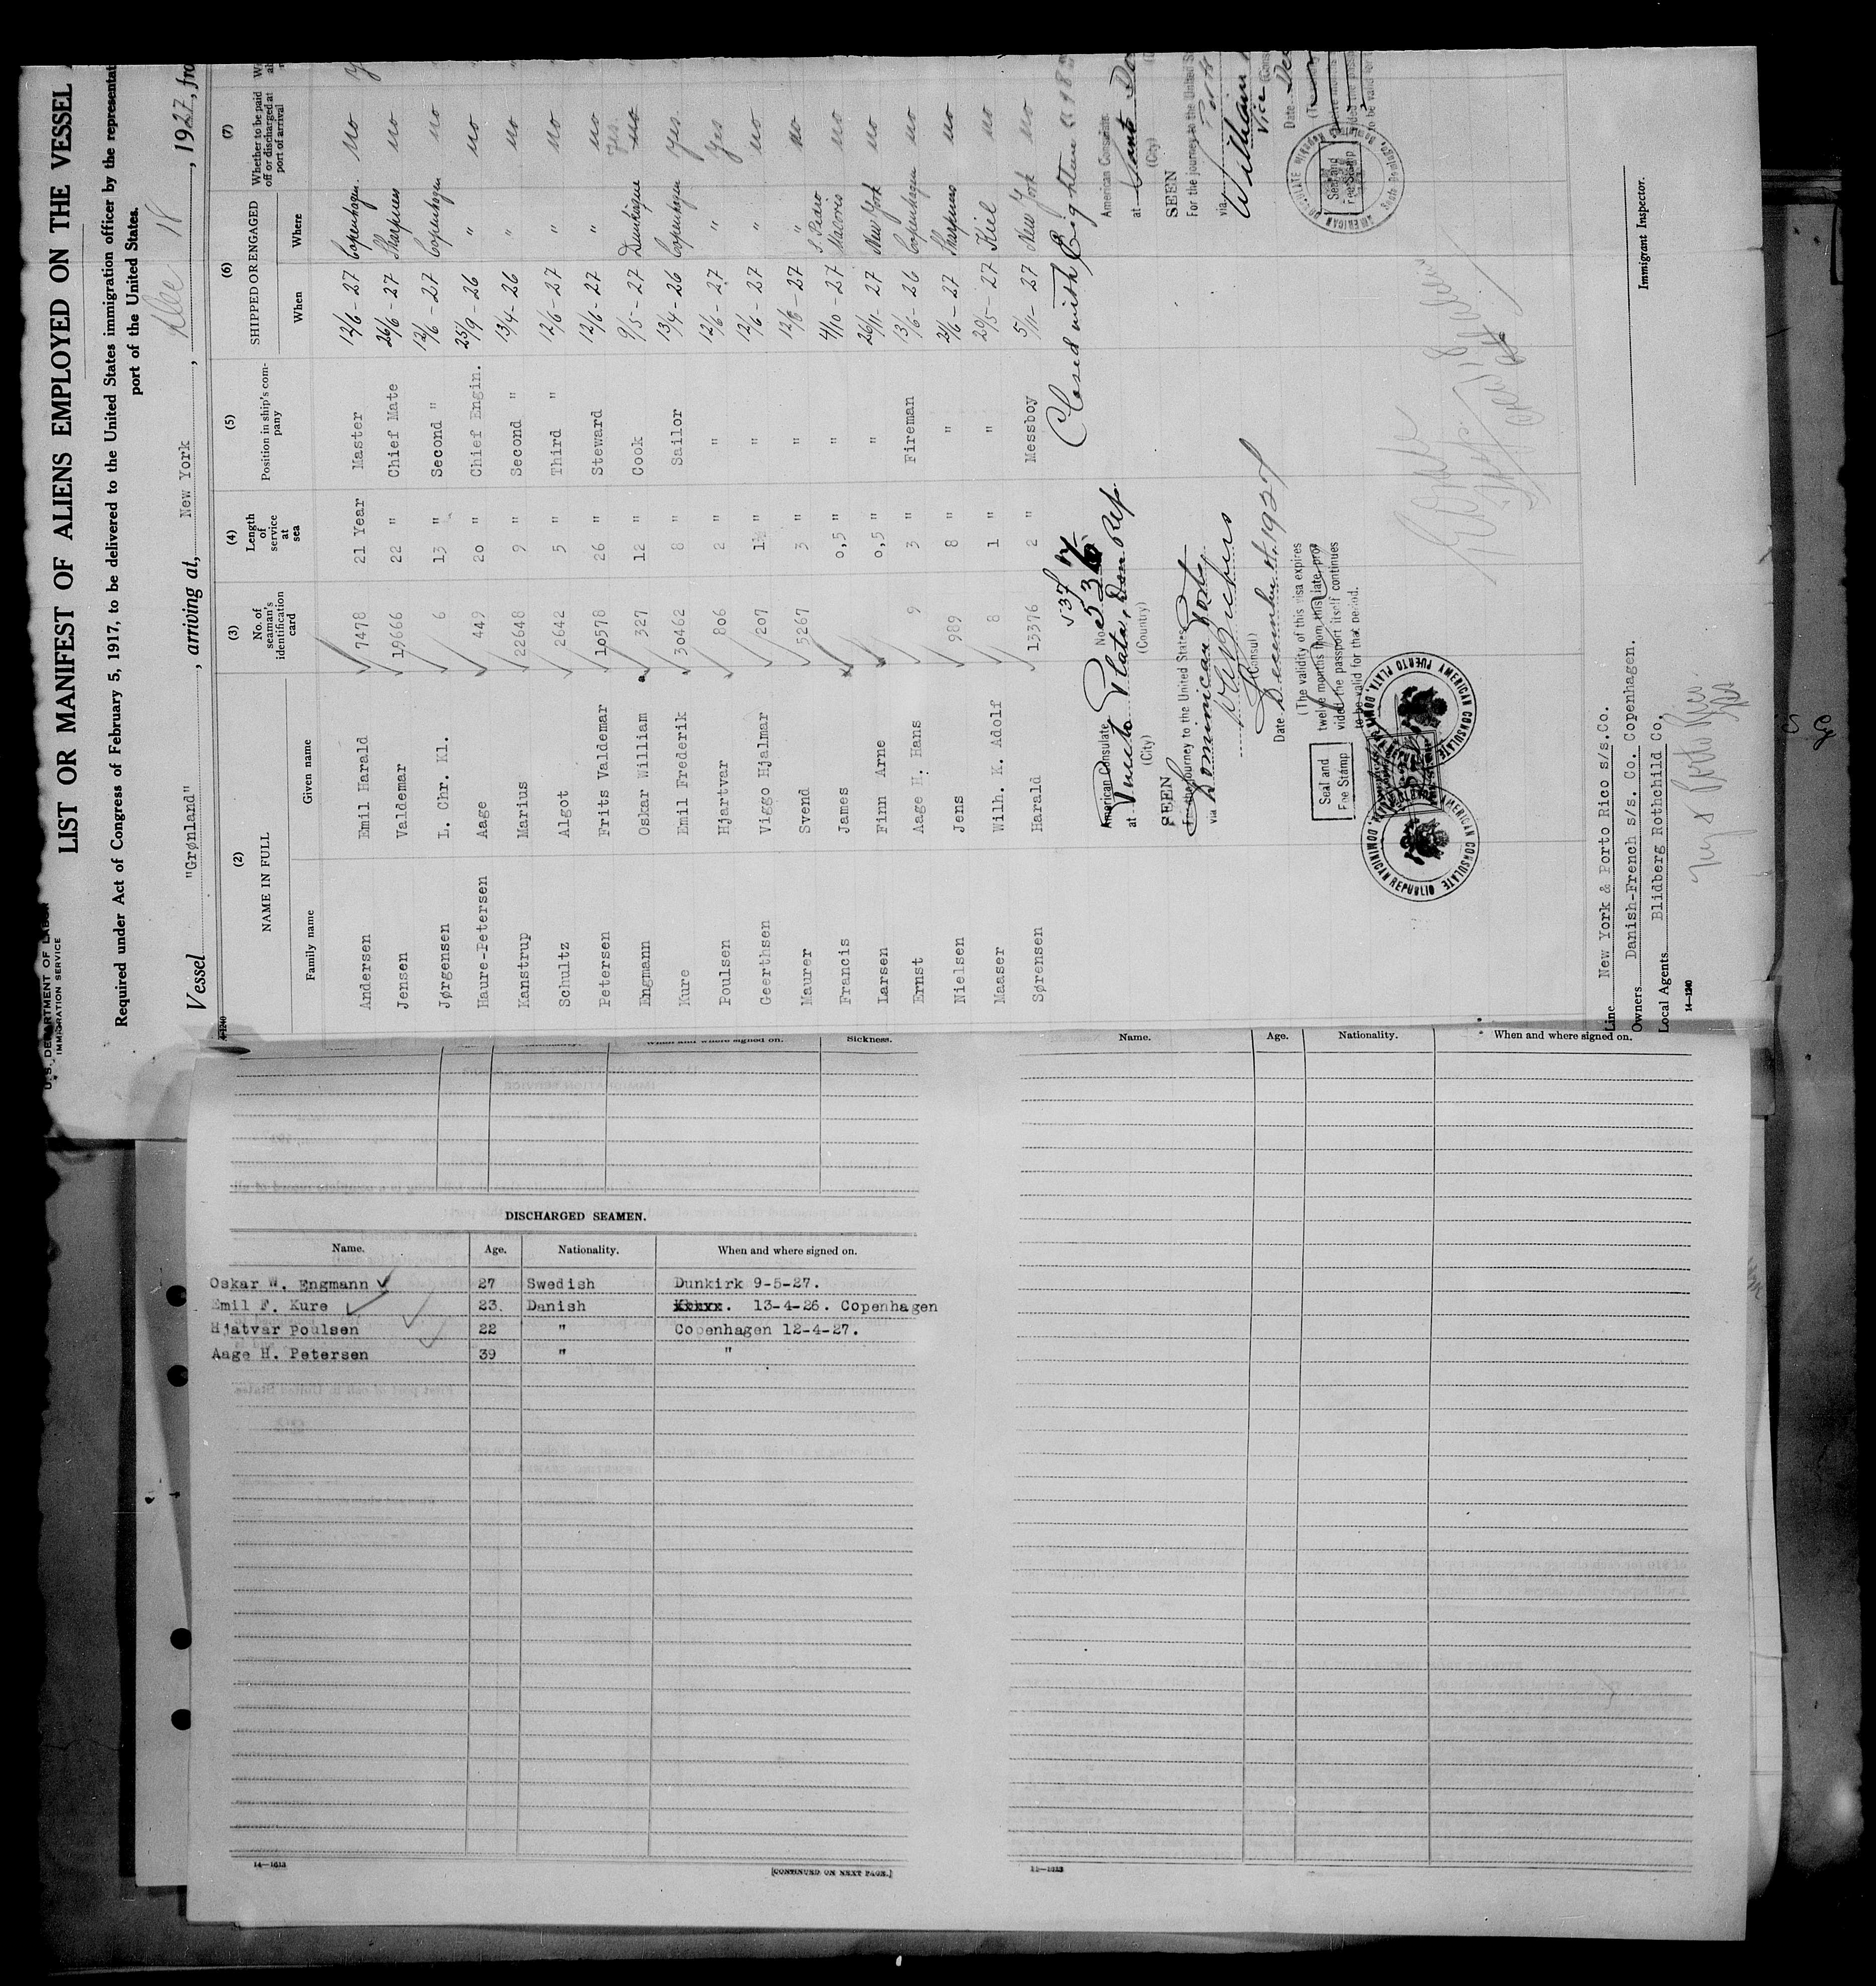 U.S. DEPARTMENT OF LABOR
IMMIGRATION SERVICE
LIST OR MANIFEST OF ALIENS EMPLOYED ON THE VESSEL
Required under Act of Congress of February 5, 1917, to be delivered to the United States immigration officer by the representat
port of the United States.
Vessel "Grønland", arriving at, New York, Dec 18, 1927, fro
14-1240
(2) (3) (4) (5) (6) (7)
NAME IN FULL No. of seaman's identification card Length of service at sea Position in ship's company SHIPPED OR ENGAGED Whether to be paid off or discharged at port of arrival
Family name Given name When Where
Andersen Emil Harald 7478 21 Year Master 12/6 - 27 Copenhagen. no
Jensen Valdemar 19666 22 " Chief Mate 26/6 - 27 Sharpness no
Jørgensen L. Chr. Kl. 6 13 " Second " 12/6 - 27 Copenhagen no
Haure-Petersen Aage 449 20 " Chief Engin. 25/9 - 26 " no
Kanstrup Marius 22648 9 " Second " 13/4 - 26 " no
Schultz Algot 2642 5 " Third " 12/6 - 27 " no
Petersen Frits Valdemar 10578 26 " Steward 12/6 - 27 " no
Engmann Oskar William 327 12 " Cook 9/5 - 27 Dunkirque no yes.
Kure Emil Frederik 30462 8 " Sailor 13/4 - 26 Copenhagen yes.
Poulsen Hjartvar 806 2 " " 12/6 - 27 " yes
Geerthsen Viggo Hjalmar 207 1½ " " 12/6 - 27 " no
Maurer Svend 5267 3 " " 12/6 - 27 " no
Francis James 0,5 " " 4/10 - 27 S. Pedro Macoris no
Larsen Finn Arne 0,5 " " 26/11 - 27 New York no
Ernst Aage H. Hans 9 3 " Fireman 13/6 - 26 Copenhagen no
Nielsen Jens 989 8 " " 2/6 - 27 Sharpness no
Maaser Wilh. K. Adolf 8 1 " " 29/5 - 27 Kiel no
Sørensen Harald 13376 2 " Messboy 5/11 - 27 New York no
Closed with Eighteen
537
American Consulate No. 536
at Puerto Plata, Dom Rep
(City) (Country)
SEEN
For the journey to the United States
via Dominican Ports
(Consul)
Date December 4. 1927
(The validity of this visa expires
twelve months from this date, pro-
vided the passport itself continues
to be valid for that period.
Seal and
Fee Stamp
AMERICAN CONSULATE PUERTO PLATA, DOMINICAN REPUBLIC
American Consulate
at Santo Do
(City)
SEEN
For the journey to the United St
via
William
Vice
Date Dec
Seal and
Fee Stamp
Line New York & Porto Rico s/s.Co.
Owners Danish-French s/s. Co. Copenhagen.
Local Agents Blidberg Rothchild Co,
Immigrant Inspector.
14-1240
Name. Age. Nationality. When and where signed on.
When and where signed on. Sickness.
DISCHARGED SEAMEN.
Name. Age. Nationality. When and where signed on.
Oskar W. Engmann 27 Swedish Dunkirk 9-5-27.
Emil F. Kure 23. Danish 13-4-26. Copenhagen
Hjatvar poulsen 22 " Copenhagen 12-4-27.
Aage H. Petersen 39 " "
14-1613
[CONTINUED ON NEXT PAGE.]
11-1613